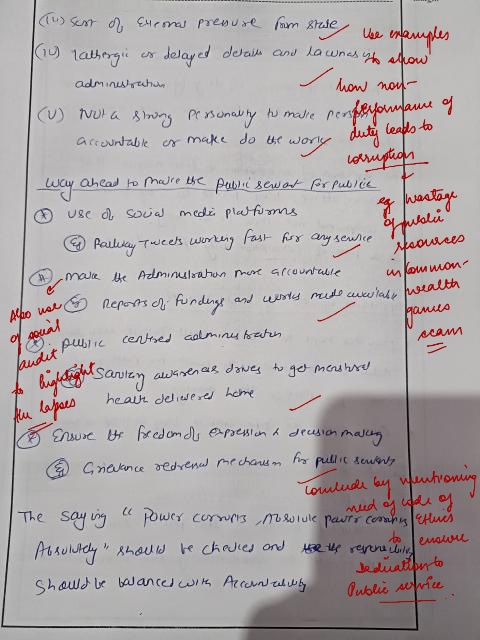 (iii) Sort of External pressure from state
(iv) Lathergic or delayed details and lacunas in
administration
(v) Not a strong personality to make person
accountable or make do the work
Way ahead to make the public servant for public
Use of Social media platforms
Eg Railway Tweets working fast for any service
make the Administration more accountable
Eg Reports of fundings and works made available
public centred administration
Sanitary awareness drives to get menstrual
health delivered home
Ensure the freedom of expression & decision making
Eg Grievance redressal mechanism for public servants
The saying "Power corrupts, Absolute power corrupts
Absolutely" should be checked and the responsibility
should be balanced with Accountability
Use examples
to show
how non-
performance of
duty leads to
corruption
eg wastage
of public
resources
in Common-
wealth
games
scam
Also use
of social
audit
to highlight
the lapses
Conclude by mentioning
need of code of
Ethics
to ensure
dedication to
Public service